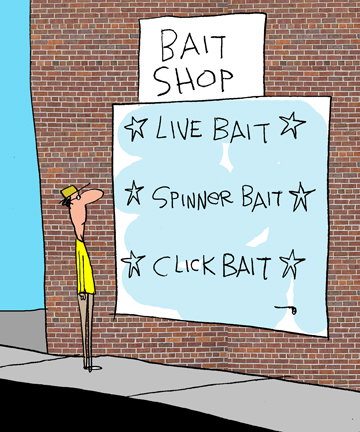 BAIT
SHOP
☆ LIVE BAIT ☆
☆ SPINNER BAIT ☆
☆ CLICK BAIT ☆